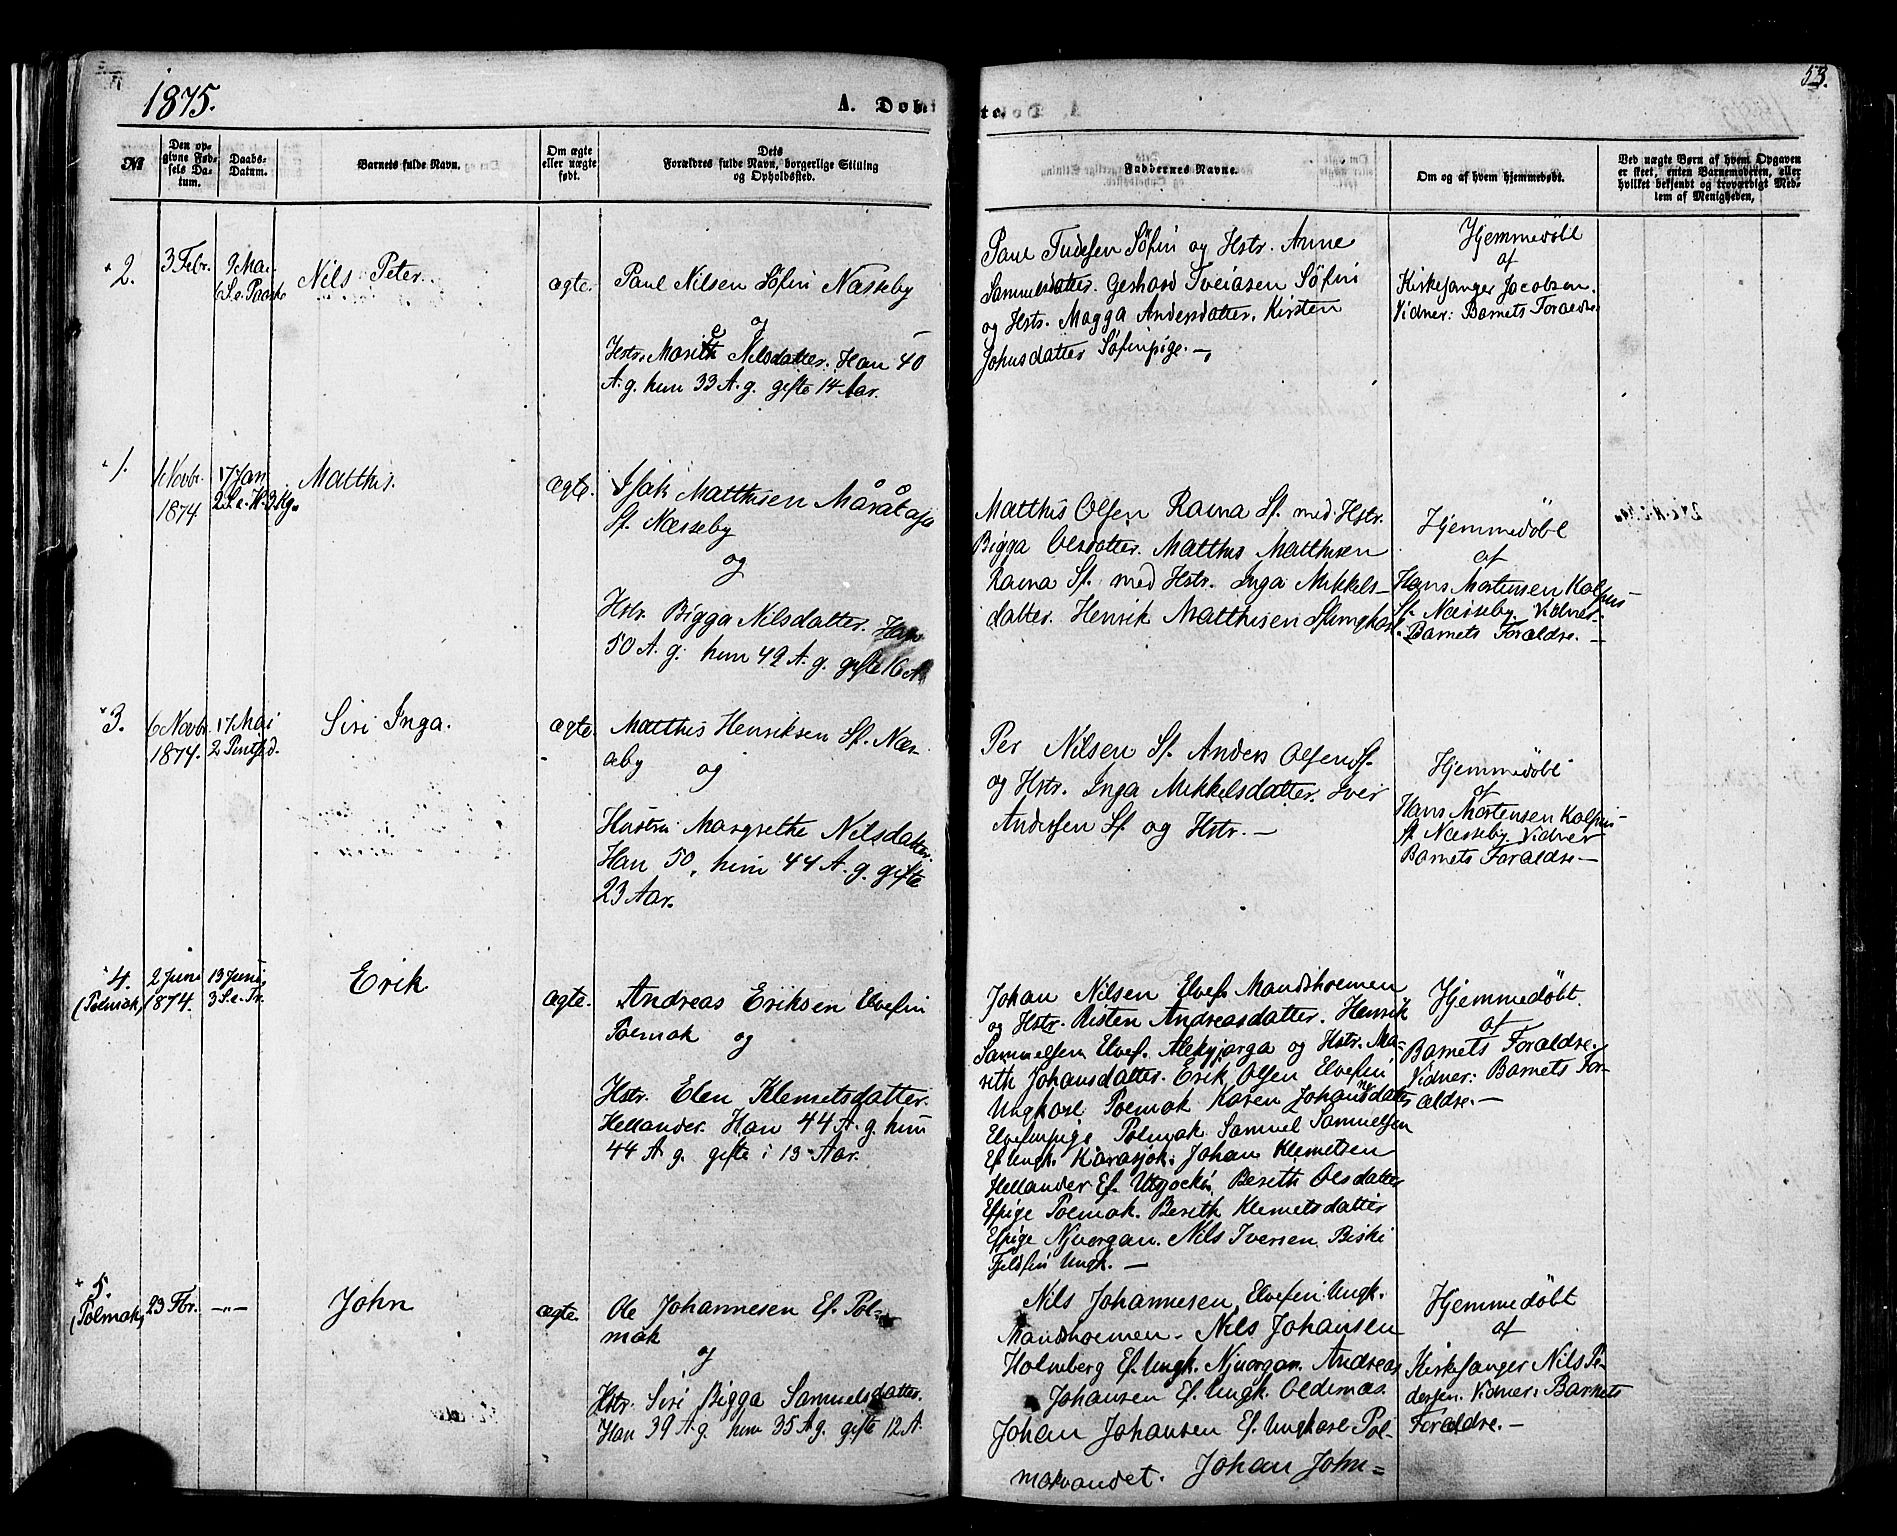 1875.
A. Døbte.
53.
№
Den opgivne Fødsels Datum.
Daabs-Datum.
Barnets fulde Navn.
Om ægte eller uægte født.
Dets Forældres fulde Navn, borgerlige Stilling og Opholdssted.
Faddernes Navne.
Om og af hvem hjemmedøbt.
Ved uægte Børn af hvem Opgaven er skeet, enten Barnemoderen, eller hvilket bekjendt og troværdigt Medlem af Menigheden,
2.
3 Febr.
9 Mai
6 S. e. Paaske
Nils Peter.
ægte.
Paul Nilsen Søfin Næsseby
og
Hstr. Marith Nilsdatter. Han 40
A. g. hun 33 A. g. gifte 14 Aar.
Paul Tudesen Søfin og Hstr. Anne
Samuelsdatter. Gerhard Tveiasen Søfin
og Hstr. Magga Andersdatter. Kirsten
Johnsdatter Søfinpige. —
Hjemmedøbt
af
Kirkesanger Jacobsen.
Vidner: Barnets Forældre
1.
1 Novbr.
1874
17 Jan
2 S. e. H. 3 Kg.
Matthis.
ægte.
Isak Matthisen
Sf. Næsseby
og
Hstr. Bigga Nilsdatter. Han
50 A. g. hun 49 A. g. gifte 16 A
Matthis Olsen Rauna Sf. med Hstr.
Bigga Olsdatter. Matthis Matthisen
Rauna Sf. med Hstr. Inga Mikkels-
datter. Henrik Matthisen Sf. Ungkarl
Hjemmedøbt
af
Hans Mortensen Kalpus
Sf. Næsseby Vidner
Barnets Forældre. —
3.
6 Novbr.
1874.
17 Mai
2 Pintsed.
Siri Inga.
ægte.
Matthis Henriksen Sf. Næs-
seby
og
Hustru Margrethe Nilsdatter.
Han 50, hun 44 A. g. gifte
23 Aar.
Per Nilsen Sf. Anders Olsen Sf.
og Hstr. Inga Mikkelsdatter. Iver
Andersen Sf. og Hstr. —
Hjemmedøbt
af
Hans Mortensen Kalpus
Sf. Næsseby Vidner
Barnets Forældre —
4.
(Polmak)
2 Juni
1874.
13 Juni
3 S. e. Tr.
Erik
ægte.
Andreas Eriksen Elvefin
Polmak
og
Hstr. Elen Klemetsdatter
Hellander. Han 44 A. g. hun
44 A g. gifte i 13 Aar.
Johan Nilsen Elvef. Mandsholmen
og Hstr. Risten Andreasdatter. Henrik
Samuelsen Elvef. Alekjarga og Hstr. Ma-
reth Johansdatter. Erik Olsen Elvefin
Ungkarl Polmak Karen Johannsdatter
Elvefinpige Polmak. Samuel Samuelsen
Ef. Ungk. Karasjok. Johan Klemetsen
Hellander Ef. Utsjocki. Bereth Olsdatter
Efpige Polmak. Bereth Klemetsdatter
Efpige Njuorgan. Nils Iversen Biski
Fjeldfin Ungk. —
Hjemmedøbt.
af
Barnets Forældre.
Vidner: Barnets For-
ældre. —
5.
(Polmak)
23 Fbr.
—"—
John
ægte.
Ole Johannesen Ef. Pol-
mak
og
Hstr. Siri Bigga Samuelsdatter.
Han 39 A g. hun 35 A g. gifte 12 A.
Nils Johannesen Elvefin Ungk.
Mandsholmen. Nils Johansen
Holmberg Ef. Ungk. Njuorgan. Andreas
Johansen Ef. Ungk. Oldernæs.
Johan Johansen Ef. Ungkarl Pol-
makvandet. Johan John=
Hjemmedøbt
af
Kirkesanger Nils Pe-
dersen. Vidner: Barnets
Forældre. —